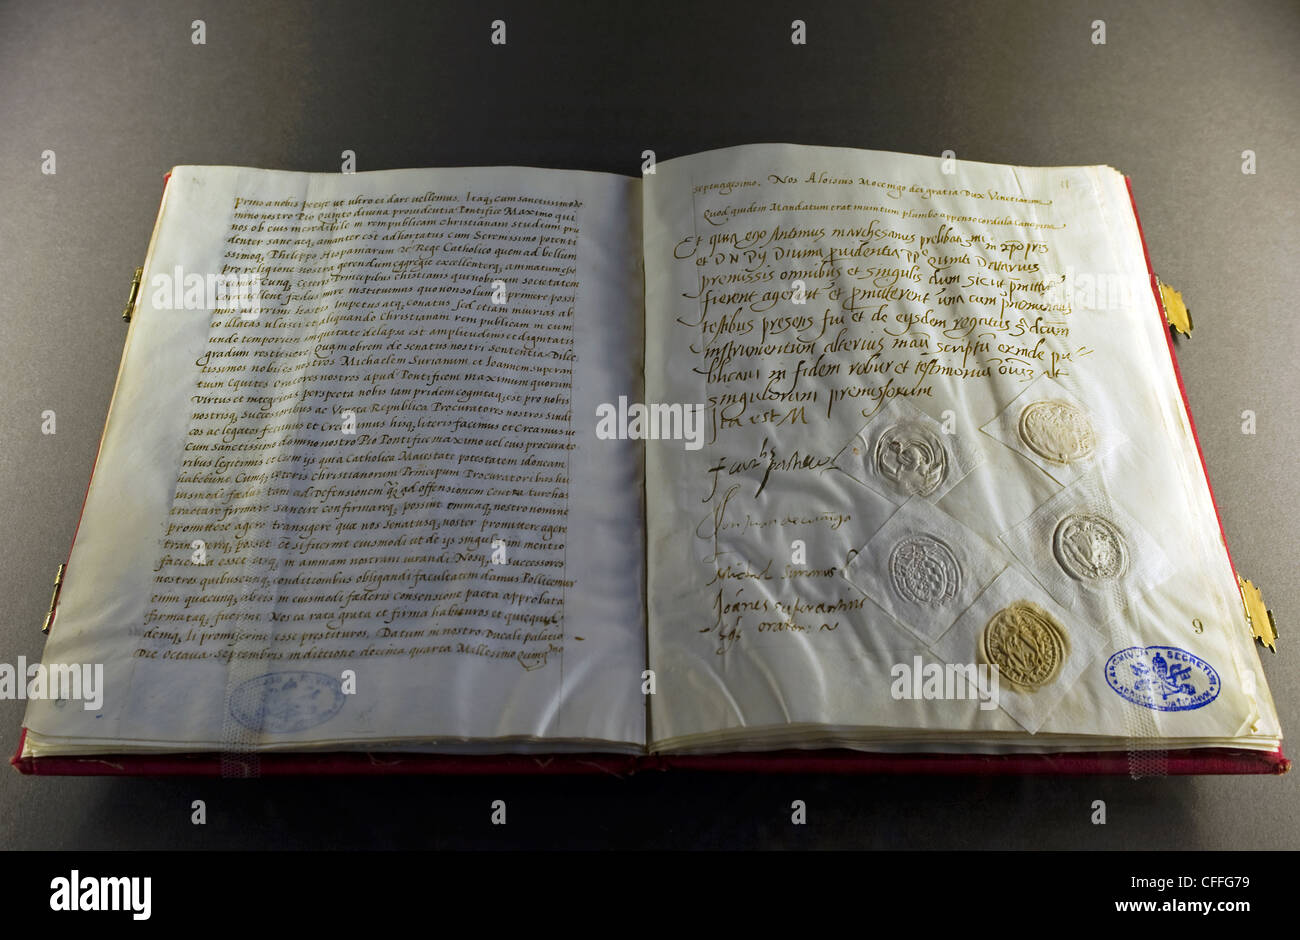 prius a nobis petijt ut ultro et dare vellemus. Itaq, cum sanctissimo do
mino nostro Pio Quinto divina providentia Pontifice Maximo qui
nos ob eius incredibile in rempublicam Christianam studium pru
denter sanc atq, amanter est adhortatus cum Serenissimo potenti
ssimoq, Philippo Hispaniarum Rege Catholico quem ad bellum
pro religione nostra gerendum egregie excellenterq, animatum esse
scimus cumq, ceteris Principibus christianis qui nobiscum societatem
coire vellent fædus inire instituimus quo non solum reprimere possi
mus acerrimi hostis impetus atq, conatus sed etiam iniurias ab
eo illatas ulcisci et aliquando Christianam rem publicam in eum
unde temporum iniquitate delapsa est amplitudinis et dignitatis
gradum restituere. Quam obrem de Senatus nostri Sententia Dilec
tissimos nobiles nostros Michaelem Surianum et Joannem superan
tium Equites Oratores nostros apud Pontificem maximum quorum
Virtus et integritas perspecta nobis tam pridem cognitaq, est pro nobis
nostrisq, Successoribus ac Veneta Republica Procuratores nostros sindi
cos ac legatos fecimus et Creavimus hisq, literis facimus et Creamus ut
Cum Sanctissimo domino nostro Pio Pontifice maximo vel eius procurato
ribus legitimis et Cum ijs quia Catholica Maiestate potestatem idoneam
habebunt Cumq, ceteris christianorum Principum Procuratoribus hu
iusmodi fædus tam ad Defensionem q ad offensionem Contra turchas
tractare firmare sancire confirmareq, possint omniaq, nostro nomine
promittere agere transigere qua nos Senatusq, noster promittere agere
transigereq, posset Et si fuerint eiusmodi ut de ijs singulatim mentio
facienda esset atq, in animam nostram iurandi. Nosq, et successores
nostros quibuscunq, conditionibus obligandi facultatem damus Pollicemur
enim quæcunq, ab eis in eiusmodi fæderis consensione pacta approbata
firmataq, fuerint Nos ea rata grata et firma habituros et quæqual
demq, ii promiserint esse prestituros. Datum in nostro Ducali palatio
Die Octava Septembris indictione decima quarta Millesimo Quing.mo
ARCHIVUM SECRETUM APOST. VATICANUM
11
septuagesimo. Nos Aloisius Mocenigo dei gratia Dux Venetiarum
Quod quidem Mandatum erat munitum plumbo appenso cordula canapina
Et quia ego Antimus marchesanus prelibati
et D N Pij Divina providentia pp Quinti Datarius
premissis omnibus et singulis dum sic ut premittitur
fierent agerentur et permitterent una cum prenominatis
testibus presens fui et de eisdem rogatus
instrumentum alterius manu scriptum exinde pu
blicavi in fidem robur et testimonium omnium et
singulorum premissorum
Ita est M
f. car.lis pacheco
Don Juan de çuñiga
Michael Surianus
Joanes superantius
eqs orator
9
ARCHIVUM SECRETUM APOST. VATICANUM
alamy
Image ID: CFFG79
www.alamy.com